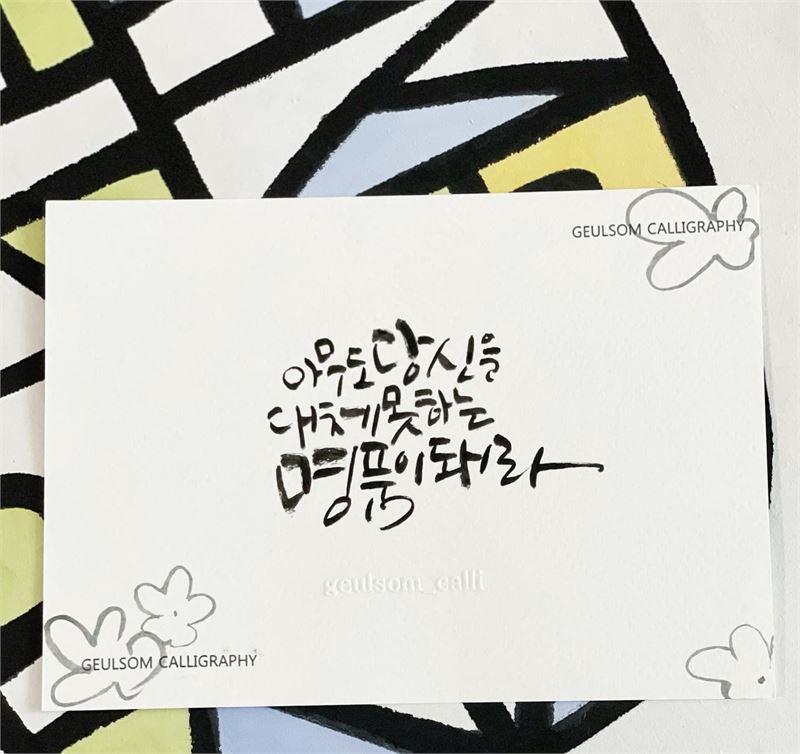 GEULSOM CALLIGRAPHY
아무도 당신을
대체 못하는
명품이 돼라
geulsom_calli
GEULSOM CALLIGRAPHY